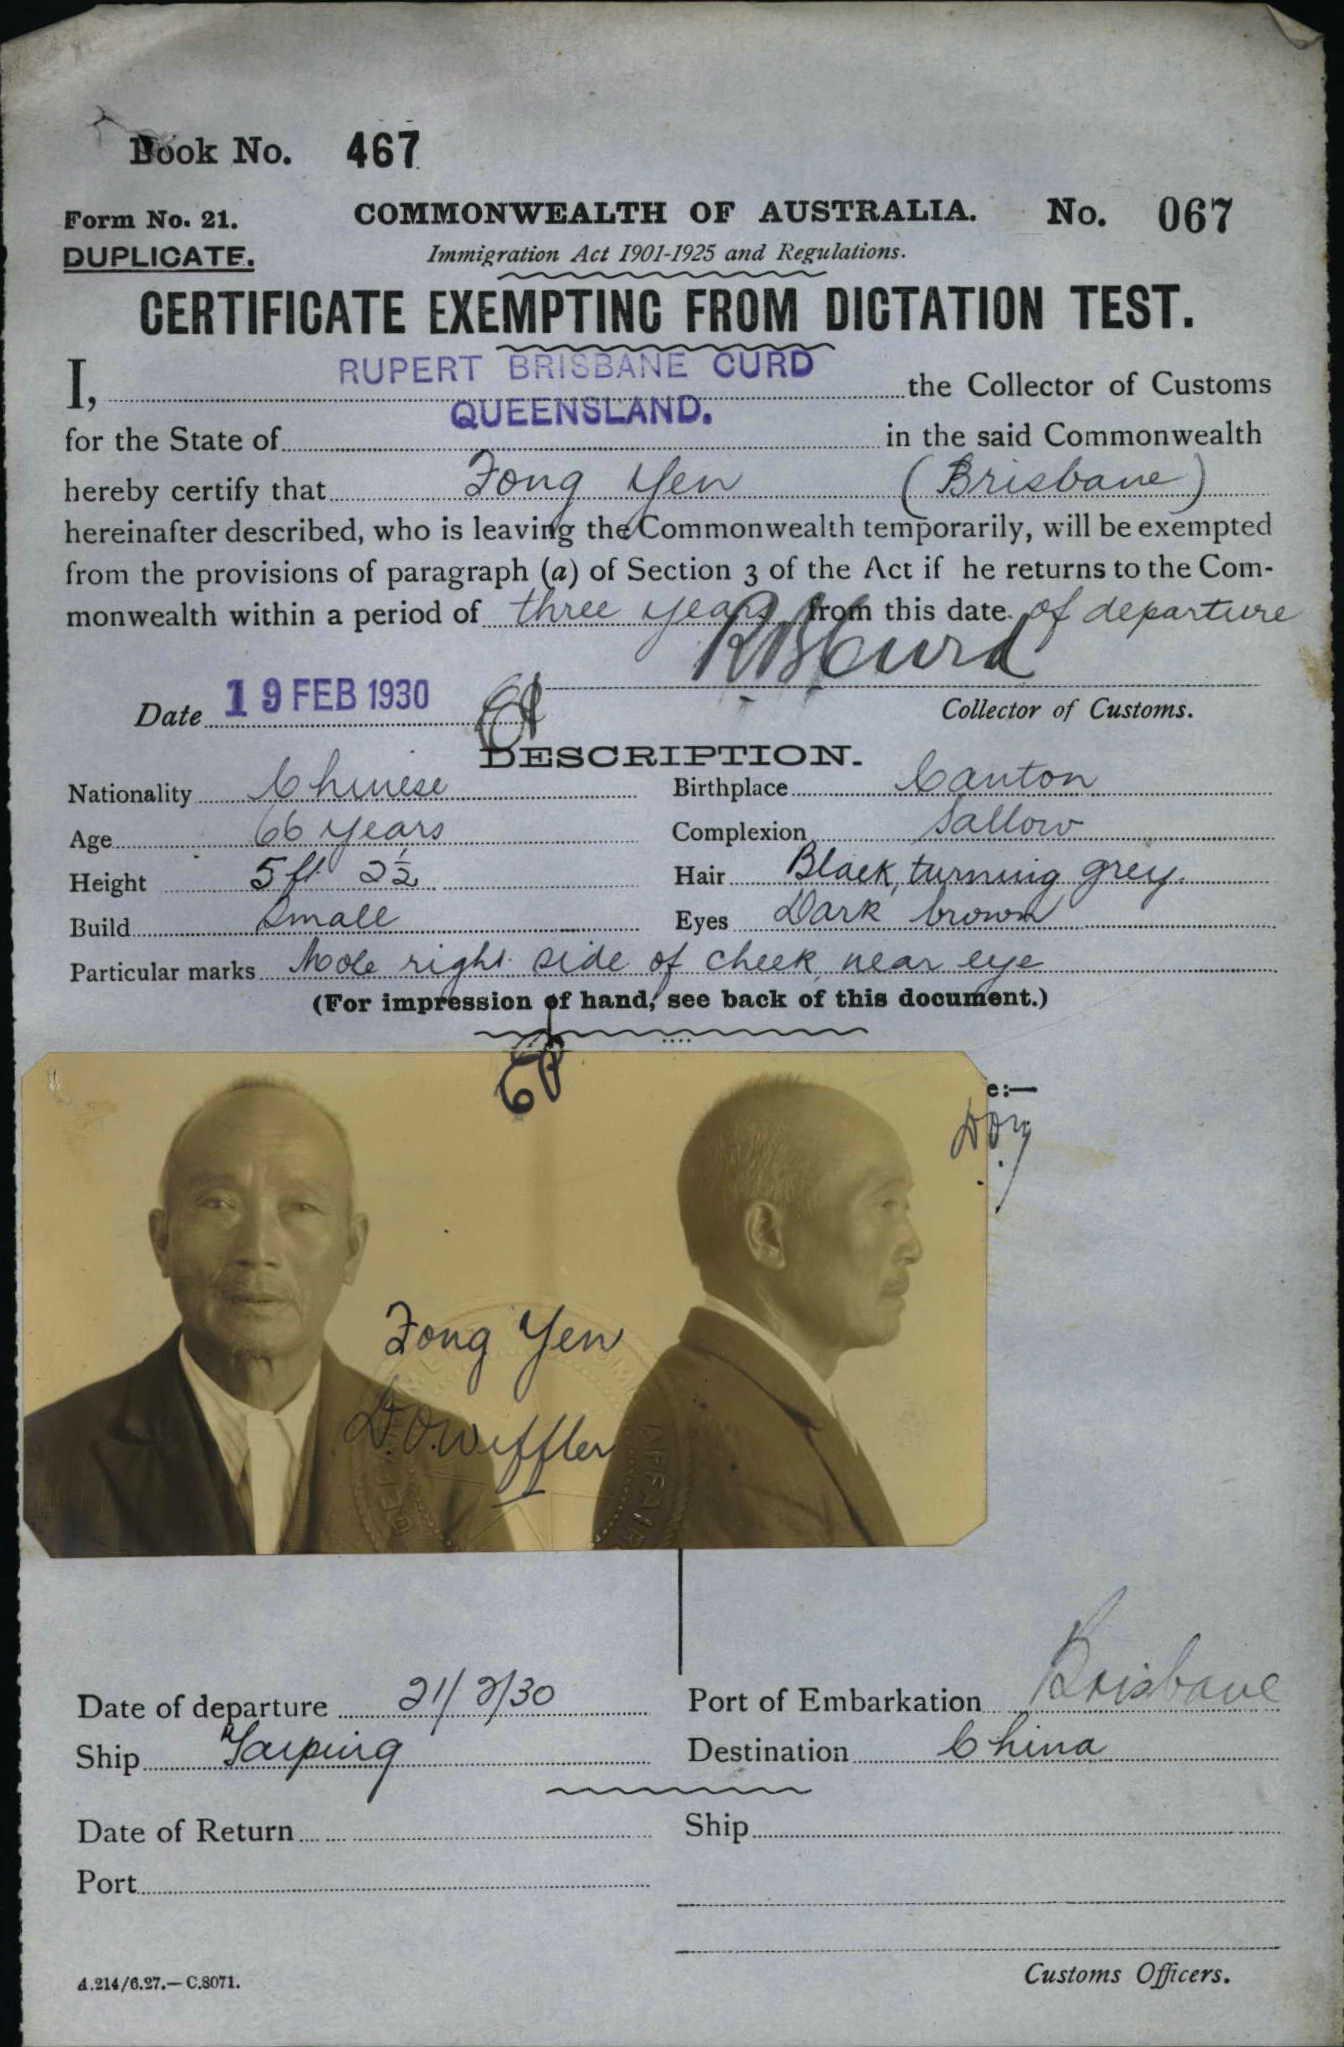 Book No. 467
Form No. 21. COMMONWEALTH OF AUSTRALIA. No. 067
DUPLICATE. Immigration Act 1901-1925 and Regulations.
CERTIFICATE EXEMPTING FROM DICTATION TEST.
I, RUPERT BRISBANE CURD the Collector of Customs
for the State of QUEENSLAND. in the said Commonwealth
hereby certify that Fong Yen (Brisbane)
hereinafter described, who is leaving the Commonwealth temporarily, will be exempted
from the provisions of paragraph (a) of Section 3 of the Act if he returns to the Com-
monwealth within a period of three years from this date of departure
RBCurd
Date 19 FEB 1930 Collector of Customs.
DESCRIPTION.
Nationality Chinese Birthplace Canton
Age 66 years Complexion Sallow
Height 5 ft 2½ Hair Black, turning grey.
Build Small Eyes Dark brown
Particular marks Mole right side of cheek near eye
(For impression of hand, see back of this document.)
e:—
Fong Yen
Date of departure 21/2/30 Port of Embarkation Brisbane
Ship Taiping Destination China
Date of Return Ship
Port
Customs Officers.
A.214/6.27.—C.8071.